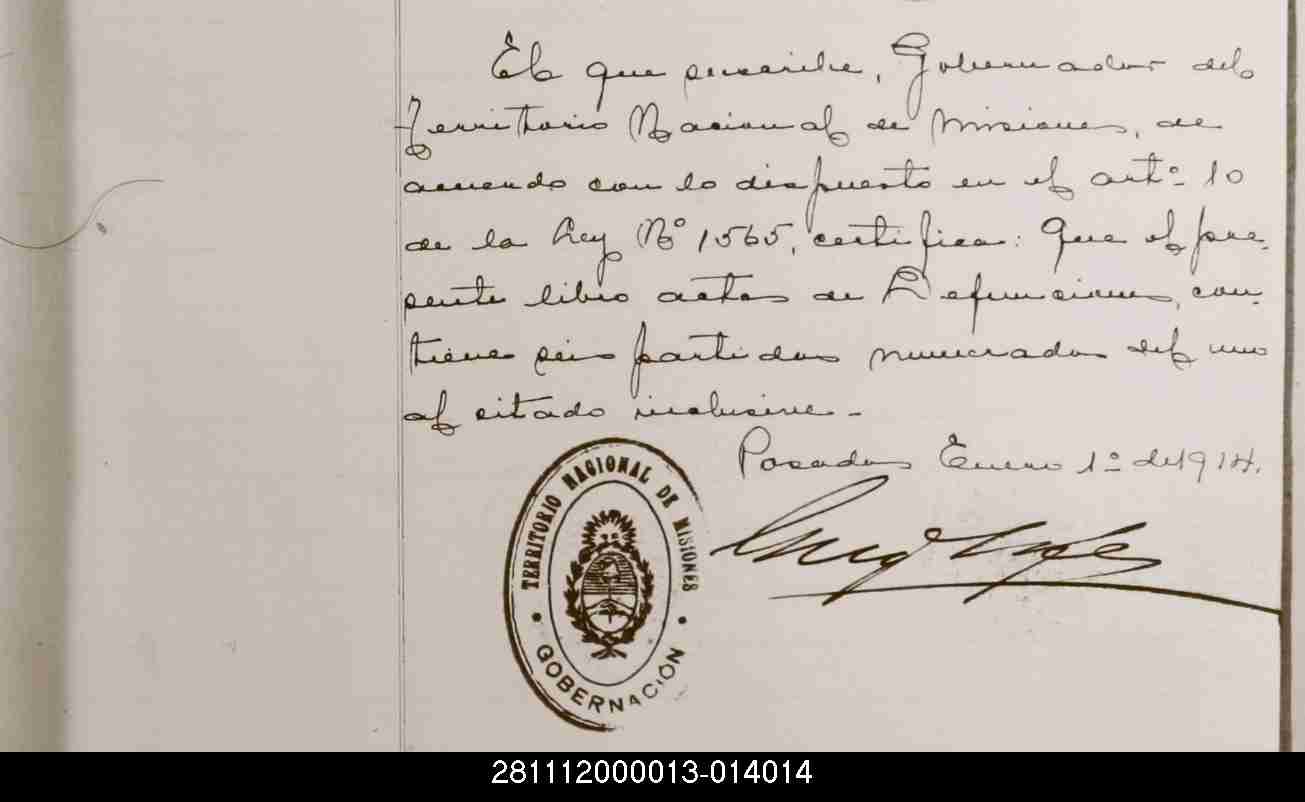 El que suscribe, Gobernador del
Territorio Nacional de Misiones, de
acuerdo con lo dispuesto en el artº 10
de la Ley Nº 1565, certifica: Que el pre-
sente libro actas de Defunciones, con-
tiene seis partidas numeradas del uno
al citado inclusive.-
Posadas Enero 1º de 1914.
TERRITORIO NACIONAL DE MISIONES
GOBERNACIÓN
281112000013-014014